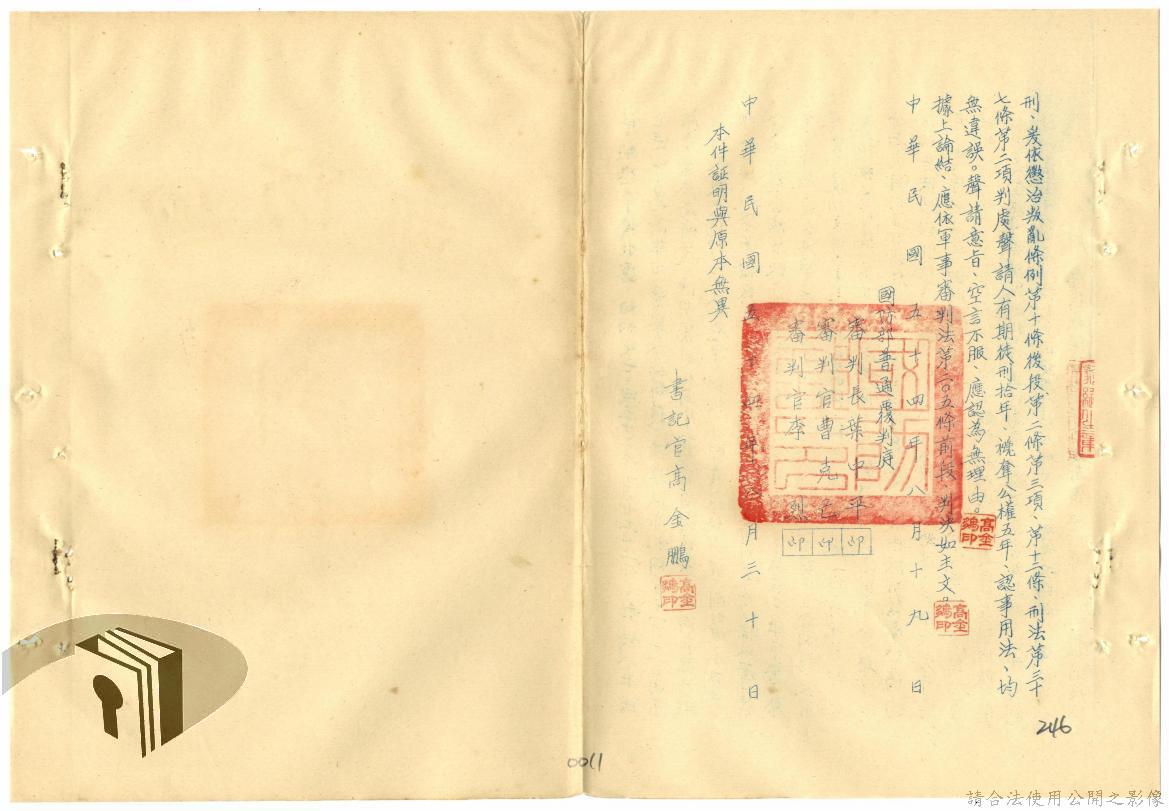 刑、爰依懲治叛亂條例第十條後段第二條第三項、第十二條、刑法第三十
七條第二項判處聲請人有期徒刑拾年、褫奪公權五年、認事用法、均
無違誤。聲請意旨、空言不服、應認為無理由。
據上論結、應依軍事審判法第二〇五條前段判決如主文。
中華民國五十四年八月十九日
國防部普通覆判庭
審判長葉中平 印
審判官曹克 印
審判官李烈 印
中華民國五十四年 月三十日
本件証明與原本無異
書記官高金鵬
高金鵬印
高金鵬印
高金鵬印
246
0011
請合法使用公開之影像